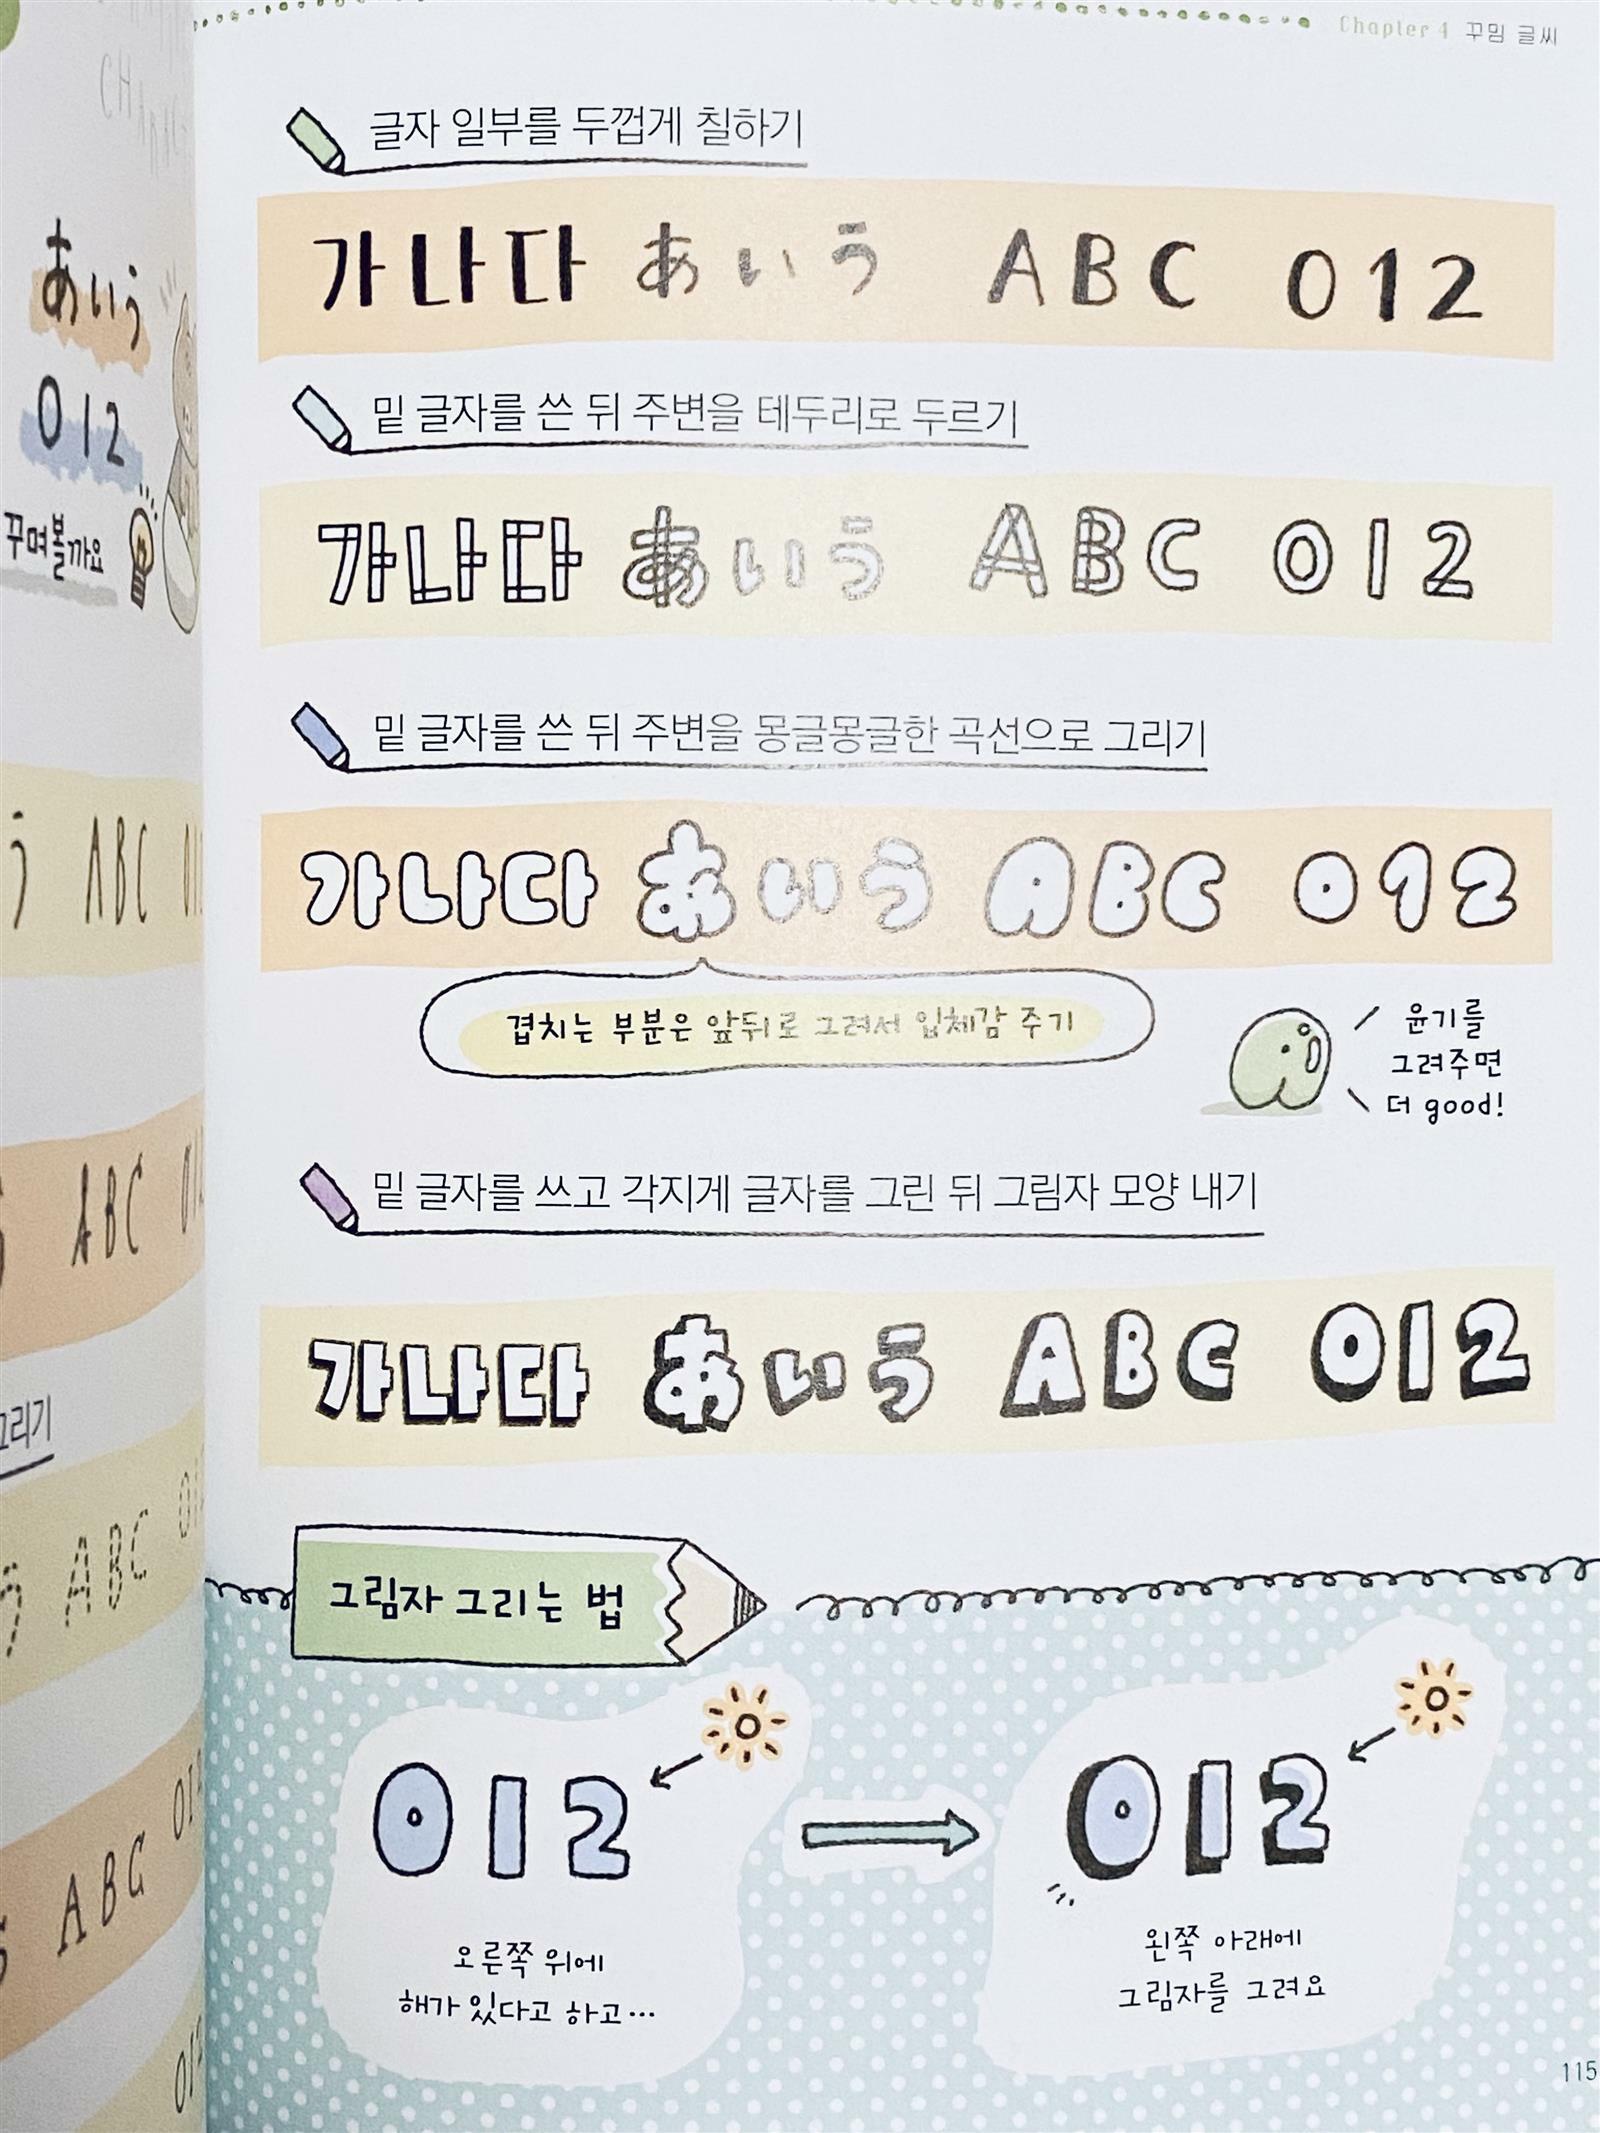 Chapter 4 꾸밈 글씨
글자 일부를 두껍게 칠하기
가나다 あいう ABC 012
밑 글자를 쓴 뒤 주변을 테두리로 두르기
가나다 あいう ABC 012
밑 글자를 쓴 뒤 주변을 몽글몽글한 곡선으로 그리기
가나다 あいう ABC 012
겹치는 부분은 앞뒤로 그려서 입체감 주기
윤기를
그려주면
더 good!
밑 글자를 쓰고 각지게 글자를 그린 뒤 그림자 모양 내기
가나다 あいう ABC 012
그림자 그리는 법
012
오른쪽 위에
해가 있다고 하고…
012
왼쪽 아래에
그림자를 그려요
115
あいう
012
꾸며볼까요
う ABC
ABC 012
그리기
う ABC
ABC 012